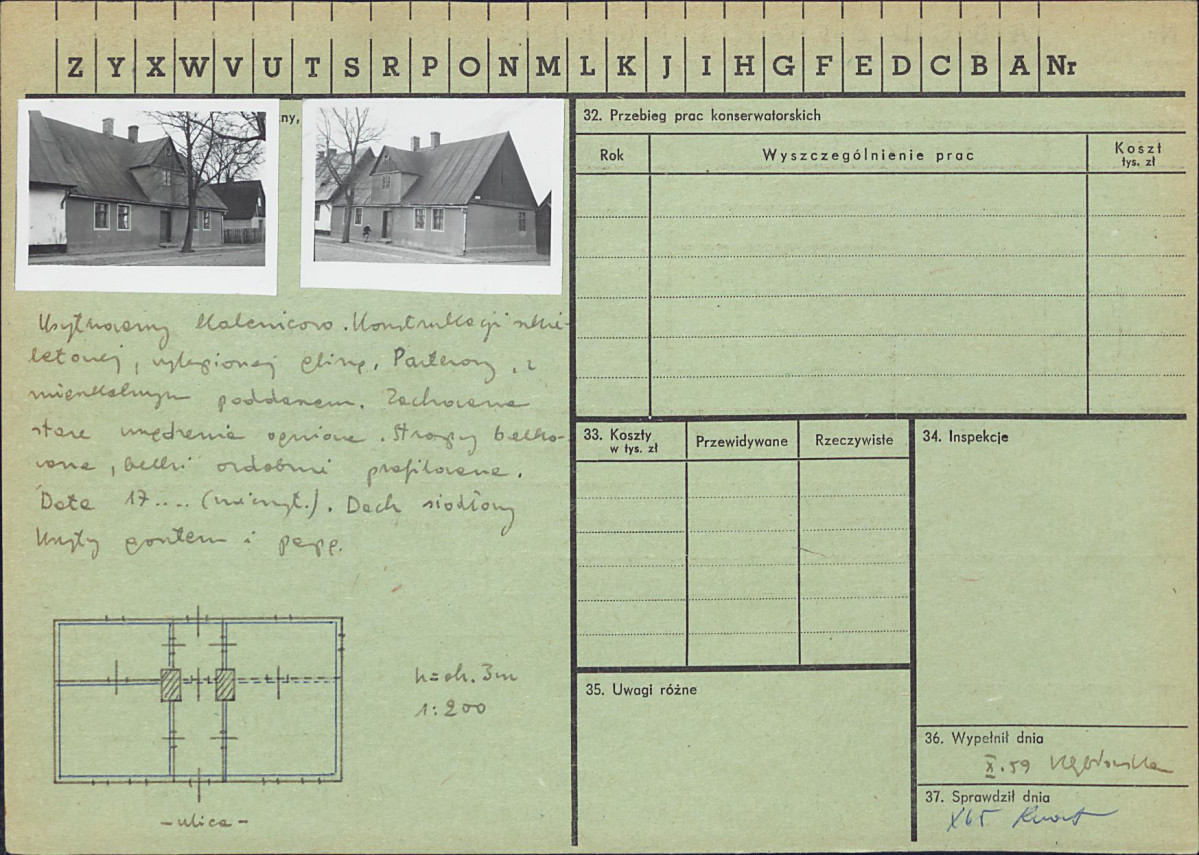 Z Y X W V U T S R P O N M L K J I H G F E D C B A Nr
ny,
Usytuowany kalenicowo. Konstrukcji szkie-
letowej, wylepionej gliną. Parterowy, z
mieszkalnym poddaszem. Zachowane
stare urządzenia ogniowe. Stropy belko-
wane, belki ozdobnie profilowane.
Data 17.... Dach siodłowy
kryty gontem i papą.
h=ok. 3m
1:200
-ulica-
32. Przebieg prac konserwatorskich
Rok Wyszczególnienie prac Koszt
tys. zł
33. Koszty
w tys. zł Przewidywane Rzeczywiste
34. Inspekcje
35. Uwagi różne
36. Wypełnił dnia
X.59
37. Sprawdził dnia
X65